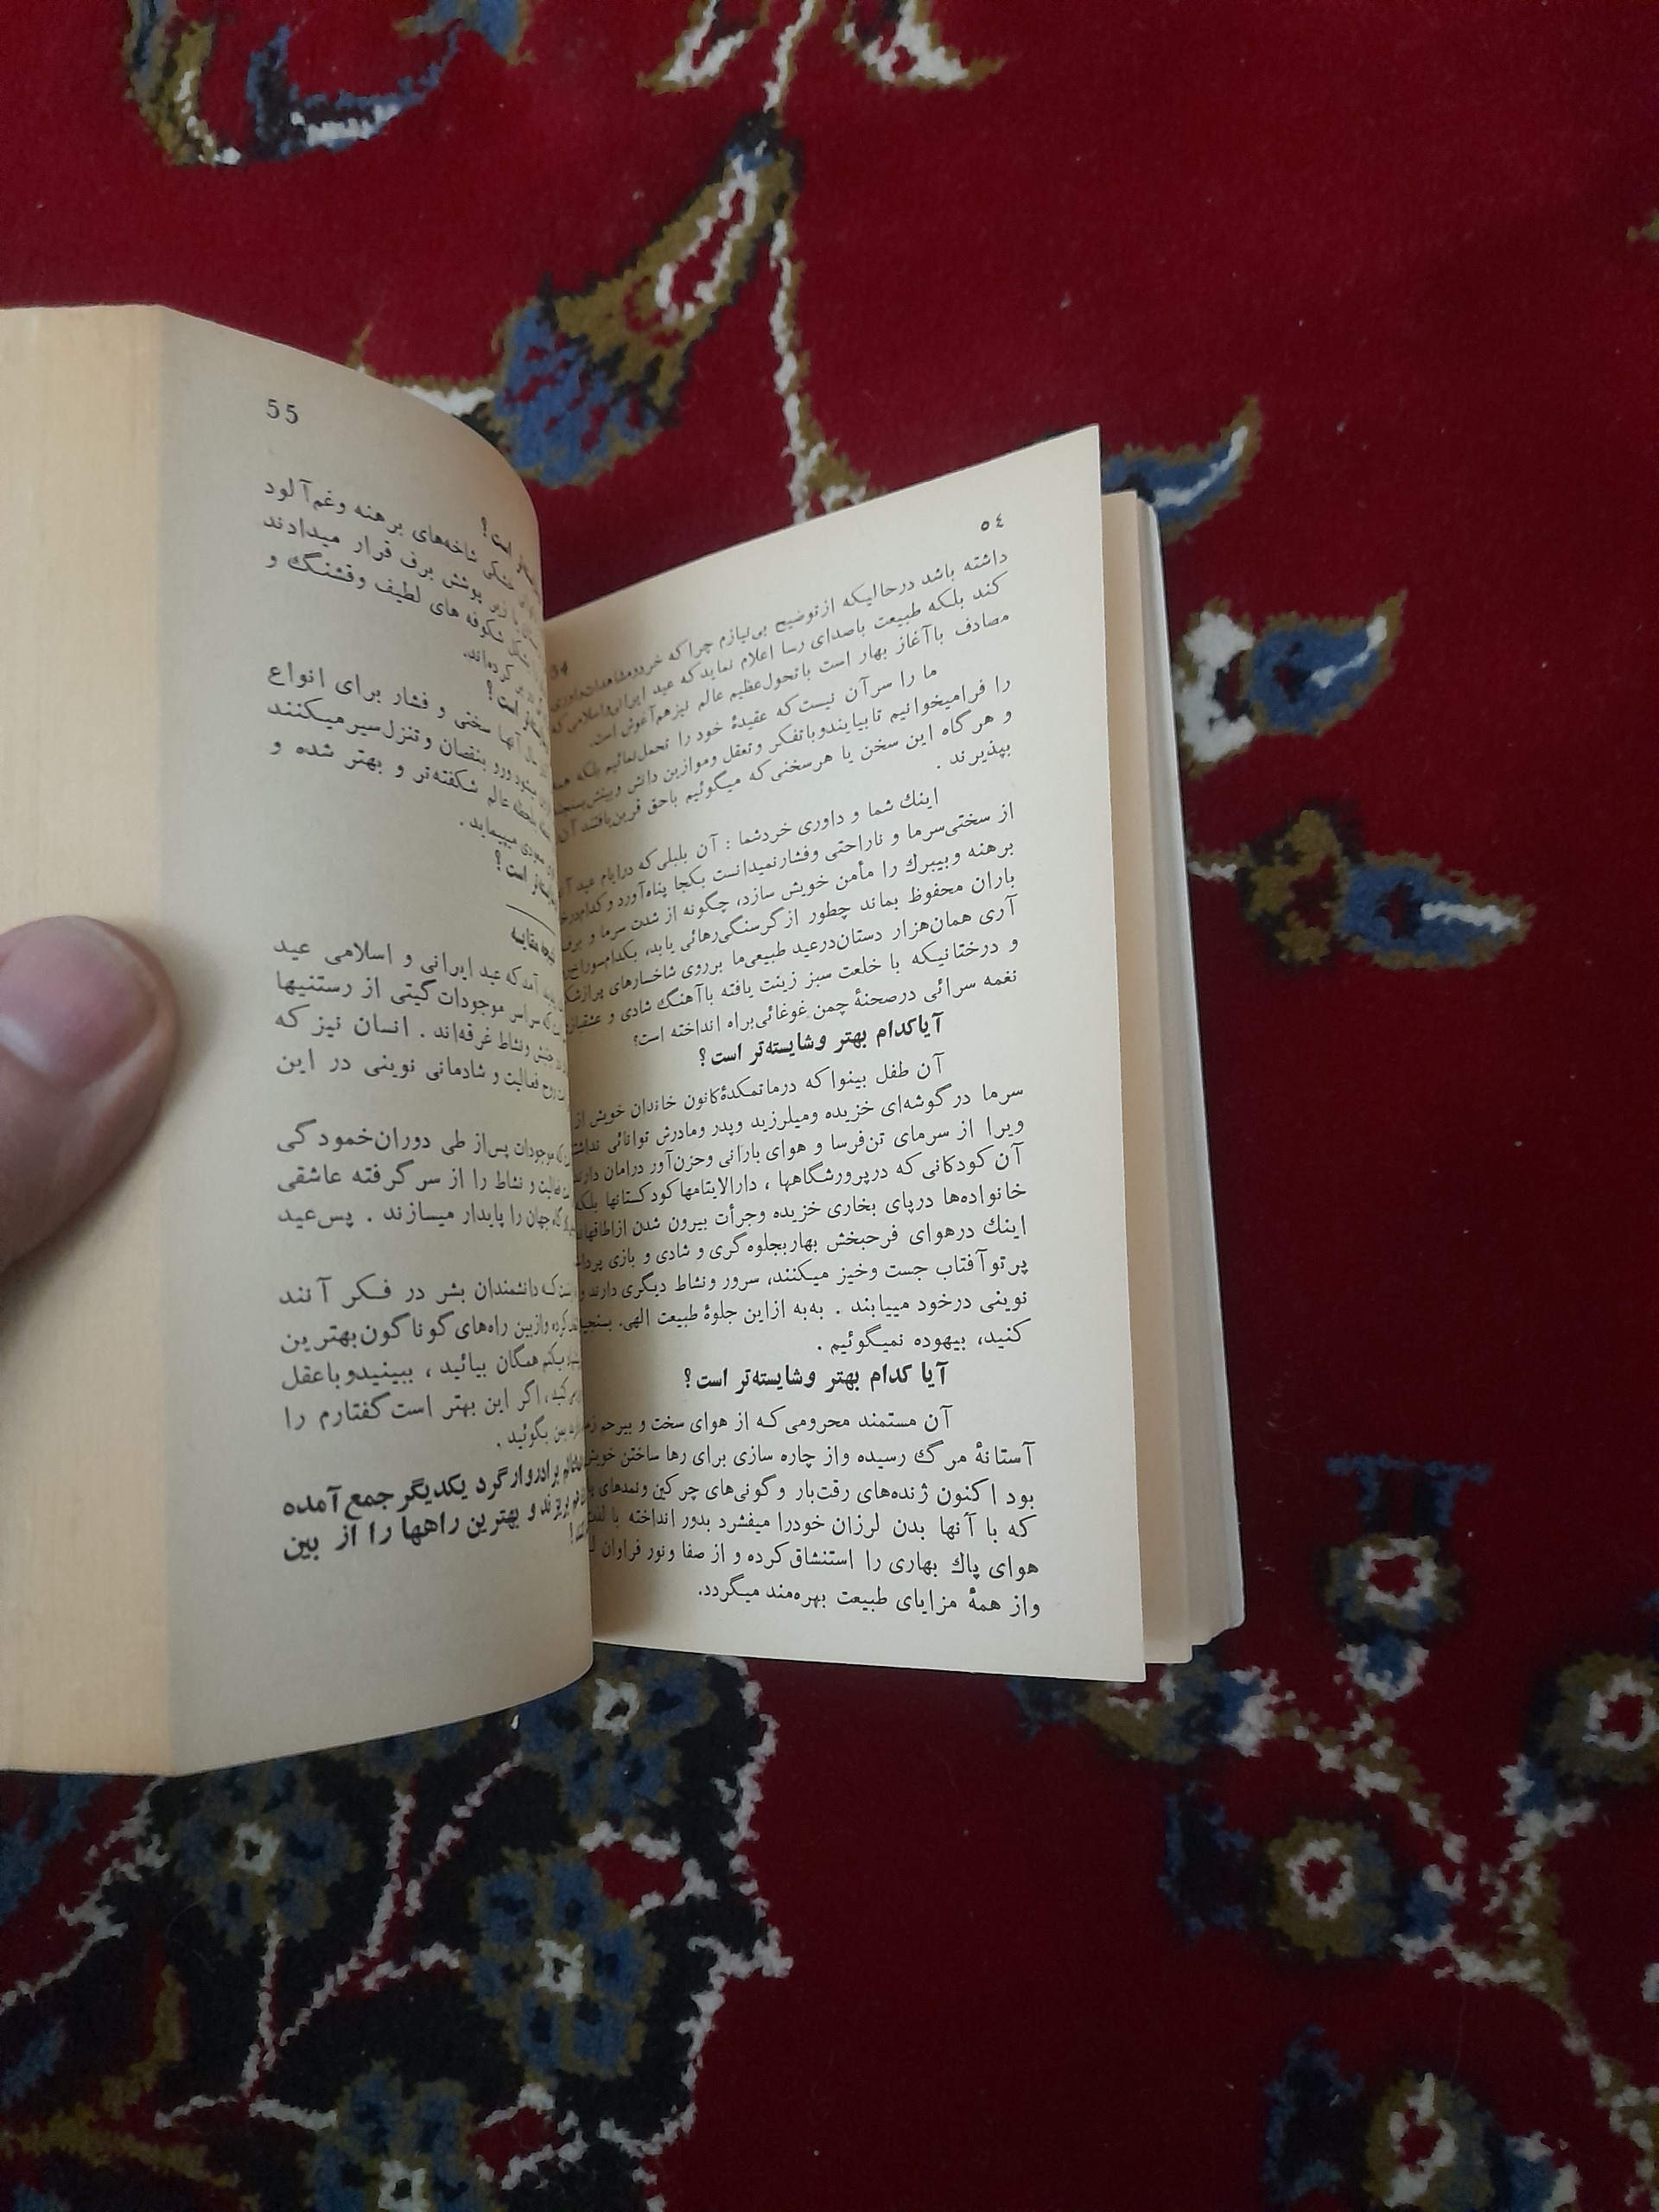 ٥٤
داشته باشد درحالیکه ازتوضیح بی‌نیازم چرا که خردومشاهدات‌داوری
کند بلکه طبیعت باصدای رسا اعلام نماید که عید ایرانی‌واسلامی که
مصادف باآغاز بهار است باتحول‌عظیم عالم نیزهم‌آغوش است.
ما را سرآن نیست که عقیدهٔ خود را تحمل‌نمائیم بلکه
را فرامیخوانیم تابیایندوباتفکر وتعقل وموازین دانش وبینش
و هرگاه این سخن یا هرسخنی که میگوئیم باحق قرین‌یافتند آن
بپذیرند .
اینك شما و داوری خردشما : آن بلبلی‌که درایام عید
از سختی‌سرما و ناراحتی وفشارنمیدانست بکجا پناه‌آورد و کدام
برهنه وبیبرك را مأمن خویش سازد، چگونه از شدت سرما و برف
باران محفوظ بماند چطور ازگرسنگی‌رهائی یابد، بکدام‌سوراخ
آری همان‌هزار دستان‌درعید طبیعی‌ما برروی شاخسارهای
و درختانیکه با خلعت سبز زینت یافته باآهنگ شادی و
نغمه سرائی درصحنهٔ چمن غوغائی‌براه انداخته است؟
آیاکدام بهتر وشایسته‌تر است؟
آن طفل بینوا که درماتمکدهٔ کانون خاندان خویش از
سرما درگوشه‌ای خزیده ومیلرزید وپدر ومادرش توانائی
ویرا از سرمای تن‌فرسا و هوای بارانی وحزن‌آور درامان دارند
آن کودکانی که درپرورشگاهها ، دارالایتامها کودکستانها بلکه
خانواده‌ها درپای بخاری خزیده وجرأت بیرون شدن ازاطاقها
اینك درهوای فرحبخش بهاربجلوه گری و شادی و بازی
پرتوآفتاب جست وخیز میکنند، سرور ونشاط دیگری دارند
نوینی درخود مییابند . به‌به ازاین جلوهٔ طبیعت الهی.
کنید، بیهوده نمیگوئیم .
آیا کدام بهتر وشایسته‌تر است؟
آن مستمند محرومی که از هوای سخت و بیرحم
آستانهٔ مرگ رسیده واز چاره سازی برای رها ساختن خویش
بود اکنون ژنده‌های رقت‌بار وگونی‌های چرکین ونمدهای
که با آنها بدن لرزان خودرا میفشرد بدور انداخته با لذت
هوای پاك بهاری را استنشاق کرده و از صفا ونور فراوان
واز همهٔ مزایای طبیعت بهره‌مند میگردد.
55
است؟
خشکی شاخه‌های برهنه وغم‌آلود
زیر پوشش برف قرار میدادند
شکوفه های لطیف وقشنگ و
کرده‌اند.
است؟
آنها سختی و فشار برای انواع
میشود ورو بنقصان وتنزل‌سیرمیکنند
عالم شکفته‌تر و بهتر شده و
صعودی میپیماید .
است؟
آمد که عید ایرانی و اسلامی عید
که سراسر موجودات گیتی از رستنیها
ونشاط غرقه‌اند . انسان نیز که
روح فعالیت و شادمانی نوینی در این
موجودات پس‌از طی دوران‌خمودگی
فعالیت و نشاط را از سر گرفته عاشقی
جهان را پایدار میسازند . پس‌عید
دانشمندان بشر در فکر آنند
کرده وازبین راه‌های گوناگون‌بهترین
بکنم همگان بیائید ، ببینیدوباعقل
کنید ، اگر این بهتر است‌گفتارم را
بمن بگوئید .
برادروارگرد یکدیگر جمع‌آمده
بریزند و بهترین راهها را از بین